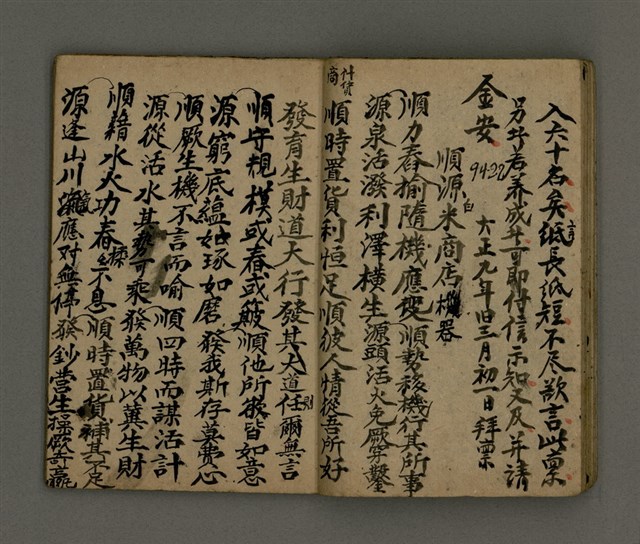 入六十名矣紙長紙短不尽欲言此稟
另外若养成并可即付信示知又及并請
金安
9432
大正九年旧三月初一日拜稟
順源米商店機器
白
順力舂揄隨機應变順勢移機行其所事
源泉活潑利澤橫生源頭活火免厭穿鑿
順時置貨利恒足順彼人情從吾所好
什貨
商
發育生財道大行發其大道任爾無言
則
順守規模或舂或簸順他所欲皆如意
源窮底蘊如琢如磨發我斯存莫費心
順厥生機不言而喻順四時而謀活計
源從活水其可乘發萬物以冀生財
順藉水火功舂不息順時置貨補其不足
源逢山川應对無停發鈔營生操厥奇贏